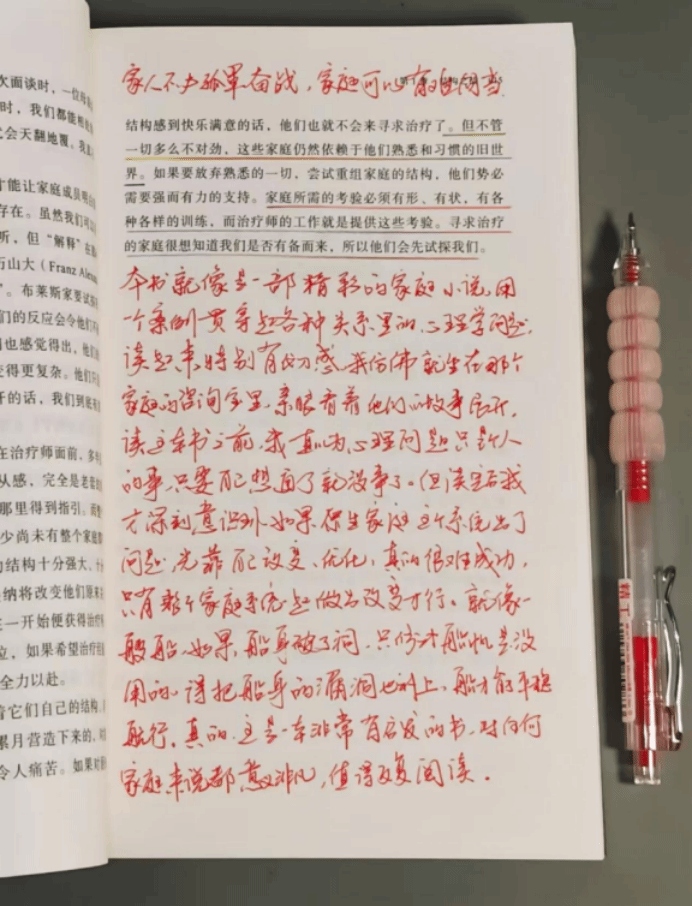 次面谈时，一位
时，我们都能
会天翻地覆。我
才能让家庭成员明
存在。虽然我们可以
听，但“解释”在
历山大（Franz Alexa
”。布莱斯家要试
们的反应会令他们
也感觉得出，他们
变得更复杂。他们
开的话，我们到底
在治疗师面前，多
从感，完全是老
那里得到指引。而
少尚未有整个家庭
的结构十分强大、
纳将改变他们原来
在一开始便获得治疗
位，如果希望治疗
全力以赴。
着它们自己的结构，
累月营造下来的，
令人痛苦。如果对
家人不为孤军奋战，家庭可以有
结构感到快乐满意的话，他们也就不会来寻求治疗了。但不管
一切多么不对劲，这些家庭仍然依赖于他们熟悉和习惯的旧世
界。如果要放弃熟悉的一切，尝试重组家庭的结构，他们势必
需要强而有力的支持。家庭所需的考验必须有形、有状，有各
种各样的训练，而治疗师的工作就是提供这些考验。寻求治疗
的家庭很想知道我们是否有备而来，所以他们会先试探我们。
本书就像是一部精彩的家庭小说，用
一个案例贯穿起各种关系里的心理学问题，
读起来特别有代入感，我仿佛就坐在那个
家庭的咨询室里，亲眼看着他们的故事展开，
读这本书之前，我一直以为心理问题只是个人
的事，只要自己想通了就没事了。但读完后我
才深刻意识到，如果原生家庭这个系统出了
问题，光靠自己改变、优化，真的很难成功，
只有整个家庭系统一起做出改变才行。就像一
艘船，如果船身破了洞，只修补船帆是没
用的，得把船身的漏洞也补上，船才能平稳
航行，真的，这是一本非常有启发的书，对任何
家庭来说都意义非凡，值得反复阅读．
精工